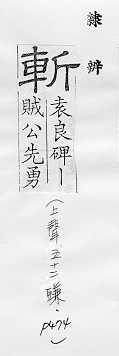 隸辨
斬
袁良碑｜
賊公先勇
(上聲五十二豏．p474)